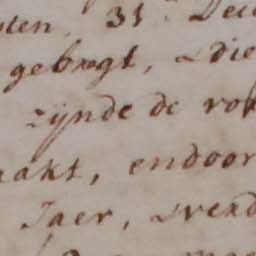 sten, 31 Dec
gebragt, & die
zijnde de ro
akt, endoor
Jaer,